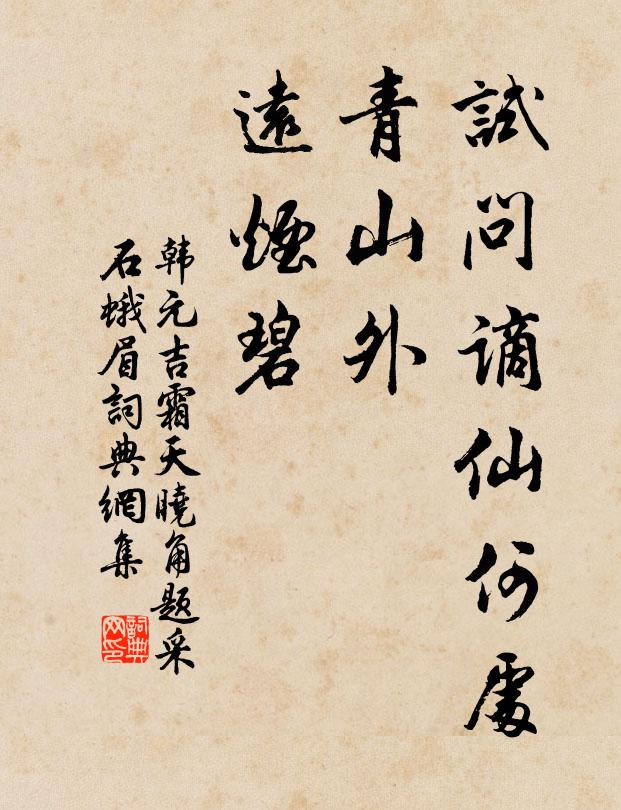 試問謫仙何處
青山外
遠煙碧
韩元吉霜天曉角題采
石蛾眉詞典網集
詞典
网印